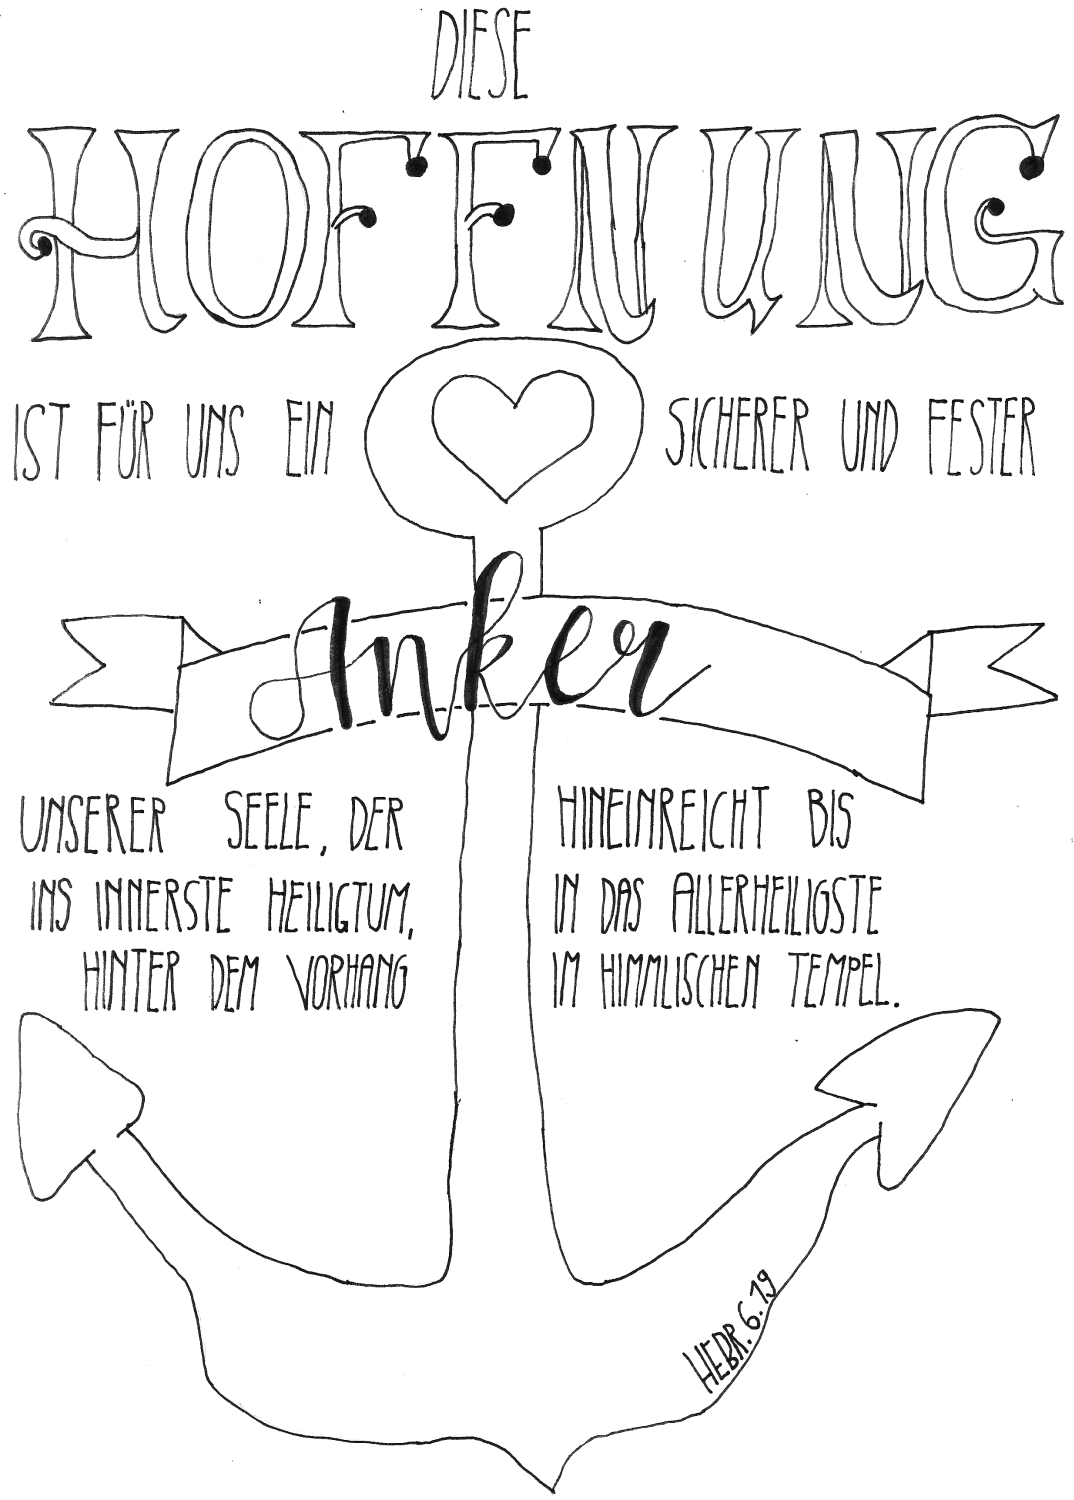 DIESE
HOFFNUNG
IST FÜR UNS EIN SICHERER UND FESTER
Anker
UNSERER SEELE, DER
INS INNERSTE HEILIGTUM,
HINTER DEM VORHANG
HINEINREICHT BIS
IN DAS ALLERHEILIGSTE
IM HIMMLISCHEN TEMPEL.
HEBR. 6.19